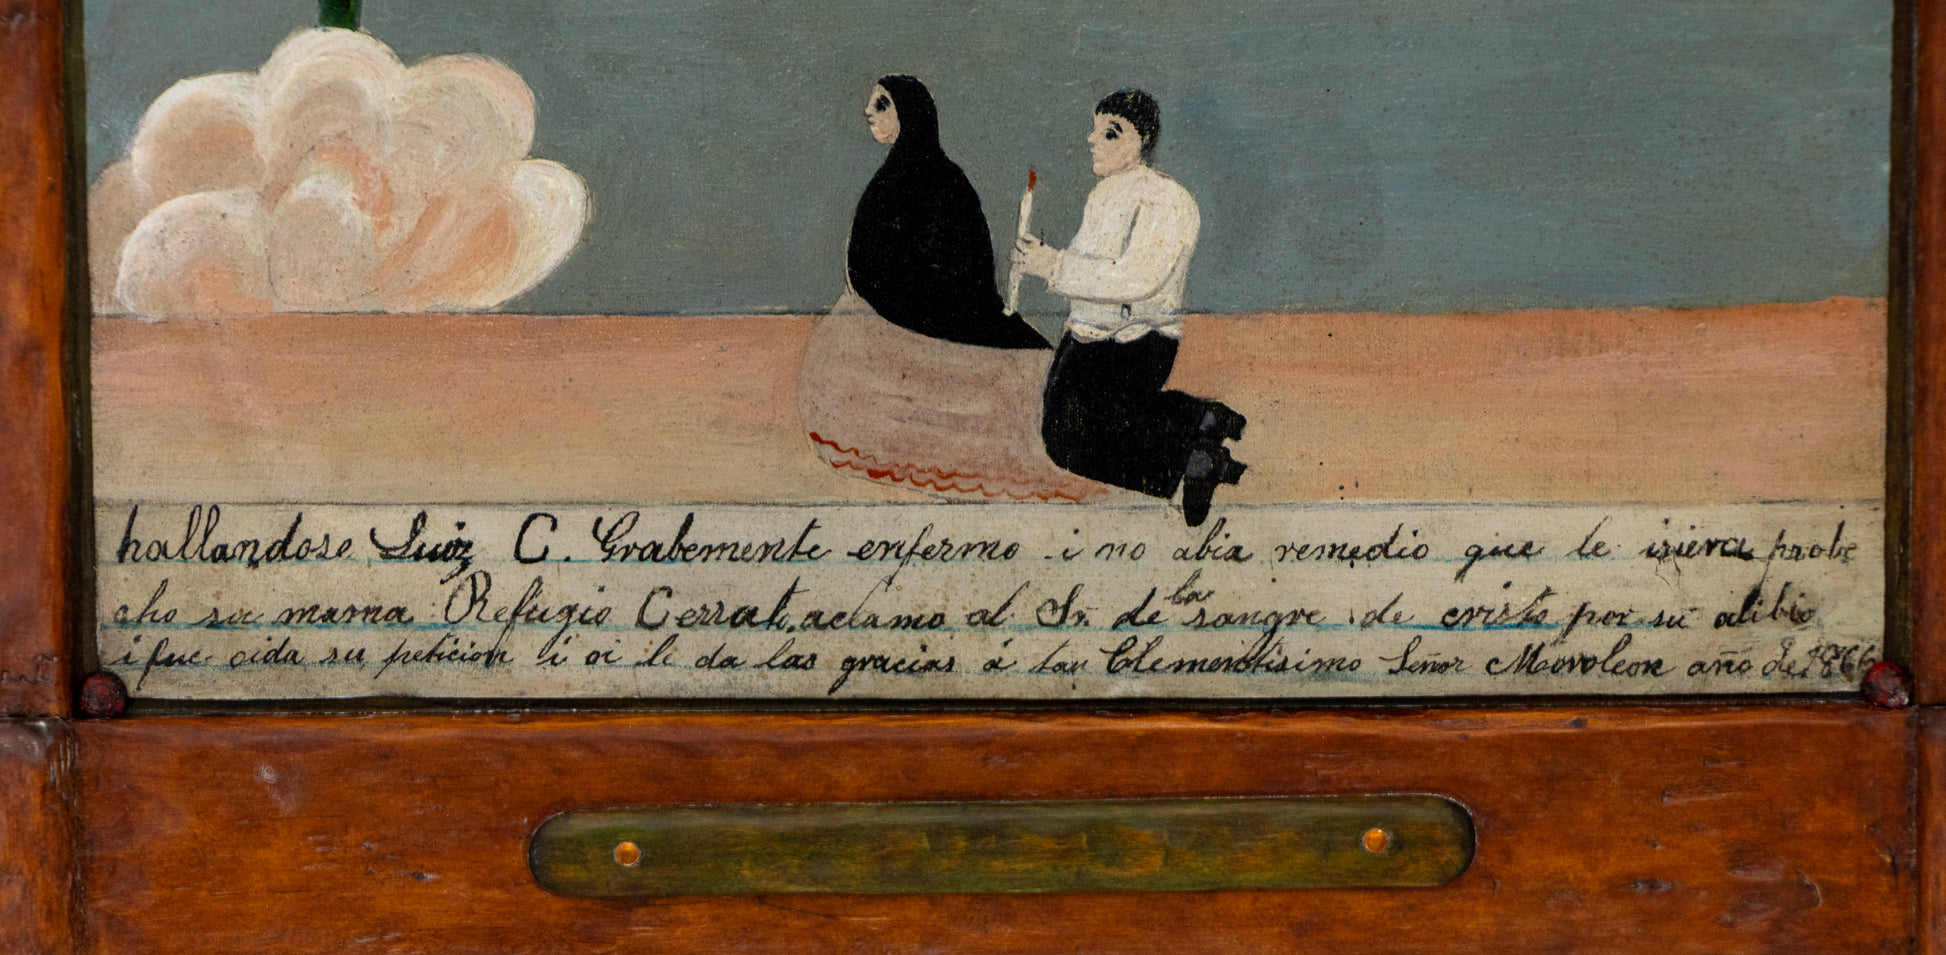 hallandose Luiz C. Grabemente enfermo i no abia remedio que le isiera probe
cho su mama Refugio Cerrato aclamo al Sr. de la sangre de cristo por su alibio
i fue oida su peticion i oi le da las gracias á tan Clementisimo Señor Moroleon año de 1866